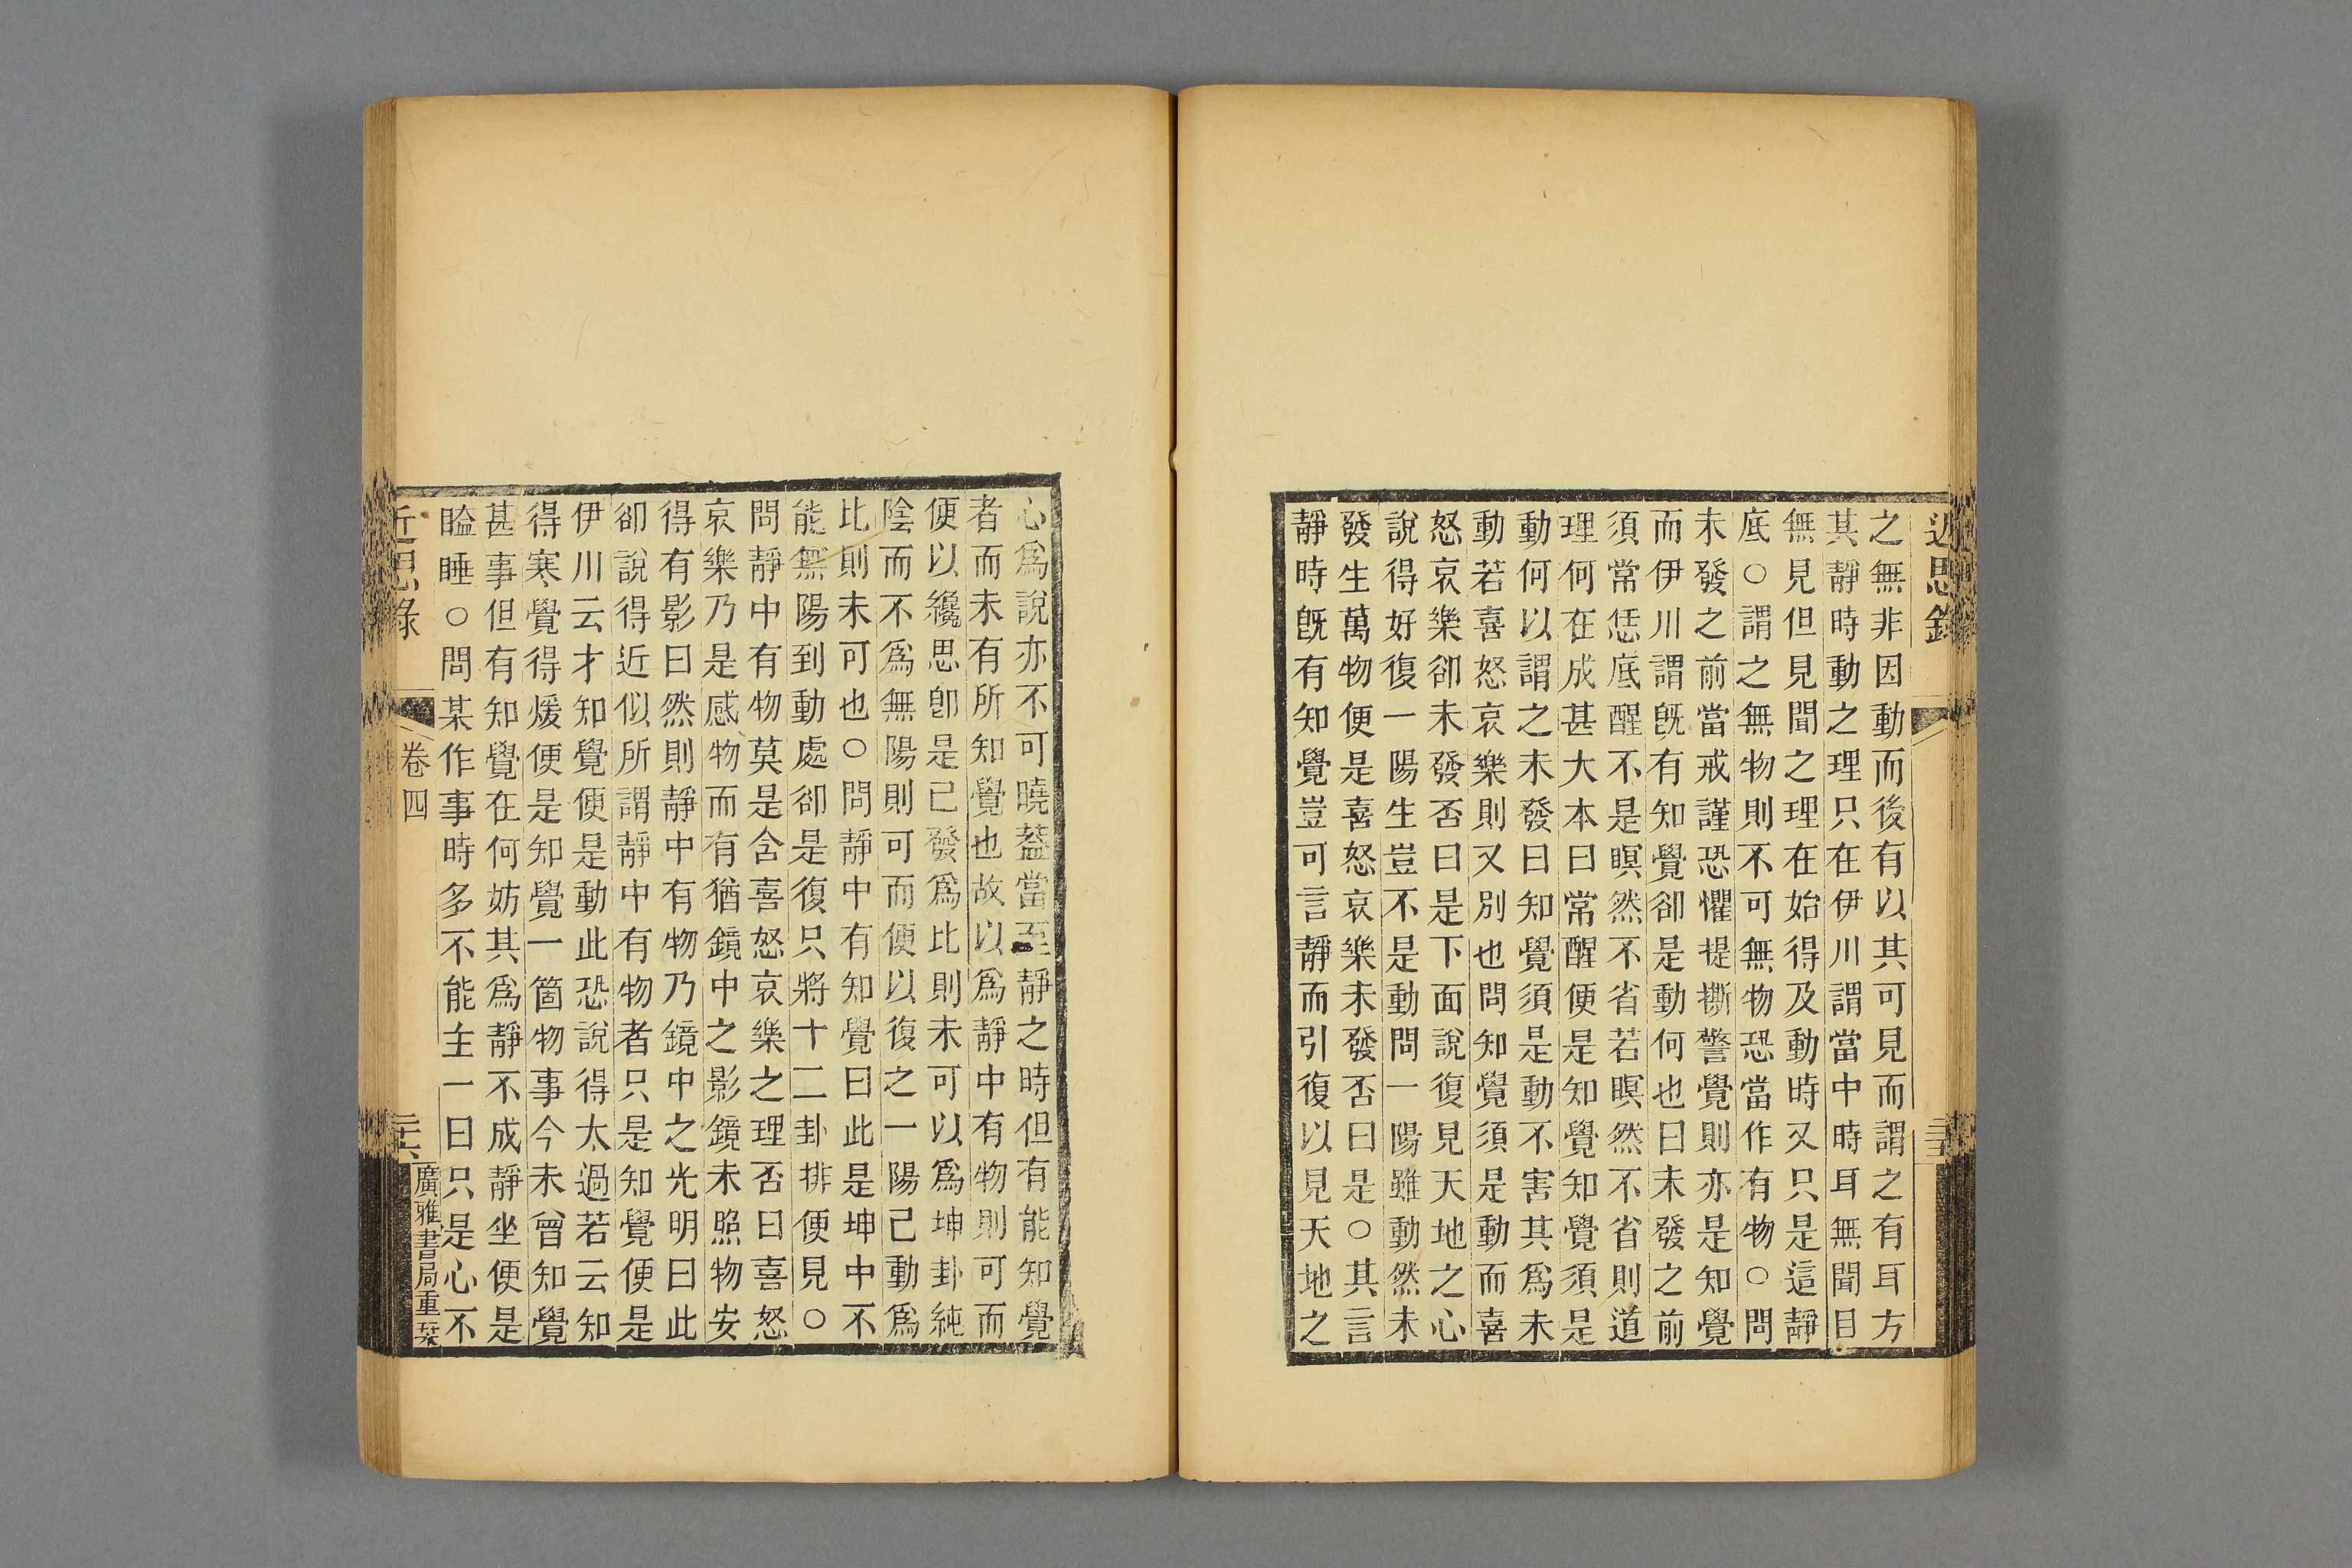 近思錄
之無非因動而後有以其可見而謂之有耳方
其靜時動之理只在伊川謂當中時耳無聞目
無見但見聞之理在始得及動時又只是這靜
底○謂之無物則不可無物恐當作有物○問
未發之前當戒謹恐懼提撕警覺則亦是知覺
而伊川謂旣有知覺卻是動何也曰未發之前
須常恁底醒不是瞑然不省若瞑然不省則道
理何在成甚大本曰常醒便是知覺知覺須是
動何以謂之未發曰知覺須是動不害其爲未
動若喜怒哀樂則又別也問知覺須是動而喜
怒哀樂卻未發否曰是下面說復見天地之心
說得好復一陽生豈不是動問一陽雖動然未
發生萬物便是喜怒哀樂未發否曰是○其言
靜時旣有知覺豈可言靜而引復以見天地之
心爲說亦不可曉蓋當至靜之時但有能知覺
者而未有所知覺也故以爲靜中有物則可而
便以纔思卽是已發爲比則未可以爲坤卦純
陰而不爲無陽則可而便以復之一陽已動爲
比則未可也○問靜中有知覺曰此是坤中不
能無陽到動處卻是復只將十二卦排便見○
問靜中有物莫是含喜怒哀樂之理否曰喜怒
哀樂乃是感物而有猶鏡中之影鏡未照物安
得有影曰然則靜中有物乃鏡中之光明曰此
卻說得近似所謂靜中有物者只是知覺便是
伊川云才知覺便是動此恐說得太過若云知
得寒覺得煖便是知覺一箇物事今未曾知覺
甚事但有知覺在何妨其爲靜不成靜坐便是
瞌睡○問某作事時多不能主一曰只是心不
近思錄
卷四
廣雅書局重栞